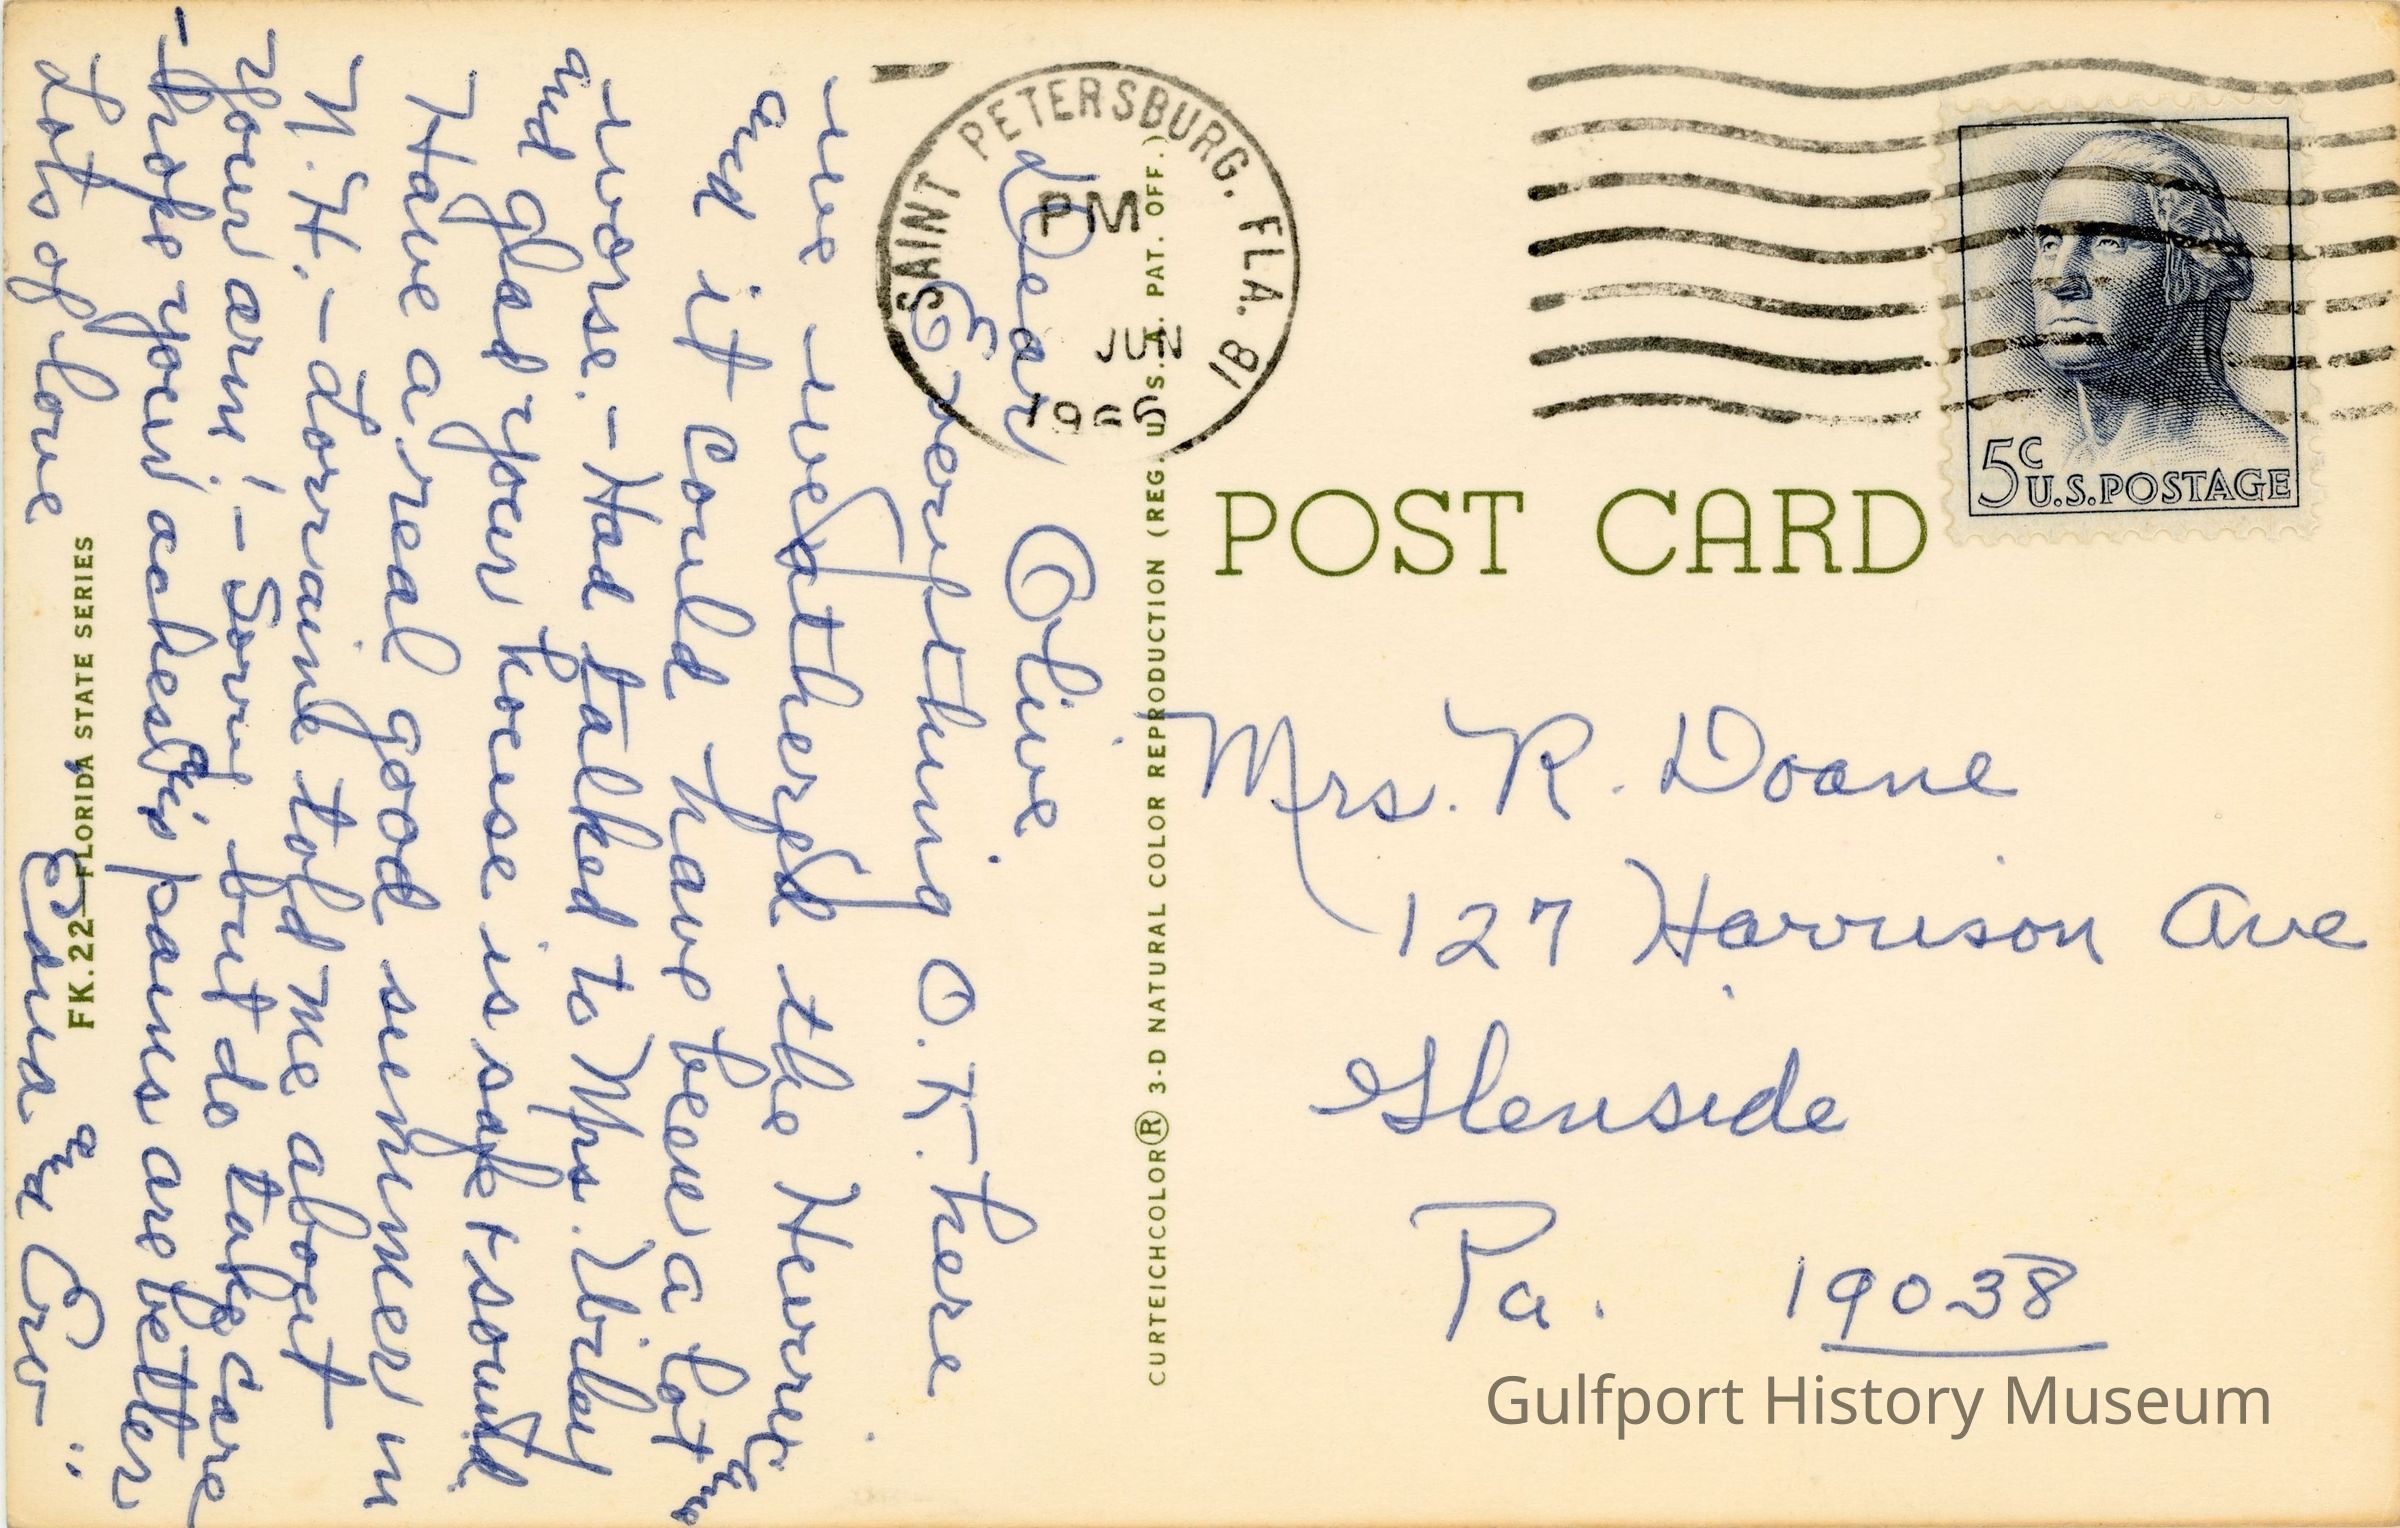 Dear Olive
Everything O.K. here
we weathered the Hurricane
and it could have been a lot
worse. - Had talked to Mrs.
and glad your house is safe + sound
Have a real good summer in
N.H. - Lorraine told me about
your arm! - Sorry but do take care
- hope your aches and pains are better
Lots of love
Edna and Erv
SAINT PETERSBURG, FLA.
PM
JUN
FK.22—FLORIDA STATE SERIES
CURTEICHCOLOR® 3-D NATURAL COLOR REPRODUCTION (REG. U.S.A. PAT. OFF.)
5c
U.S. POSTAGE
POST CARD
Mrs. R. Doane
127 Harrison Ave
Glenside
Pa. 19038
Gulfport History Museum